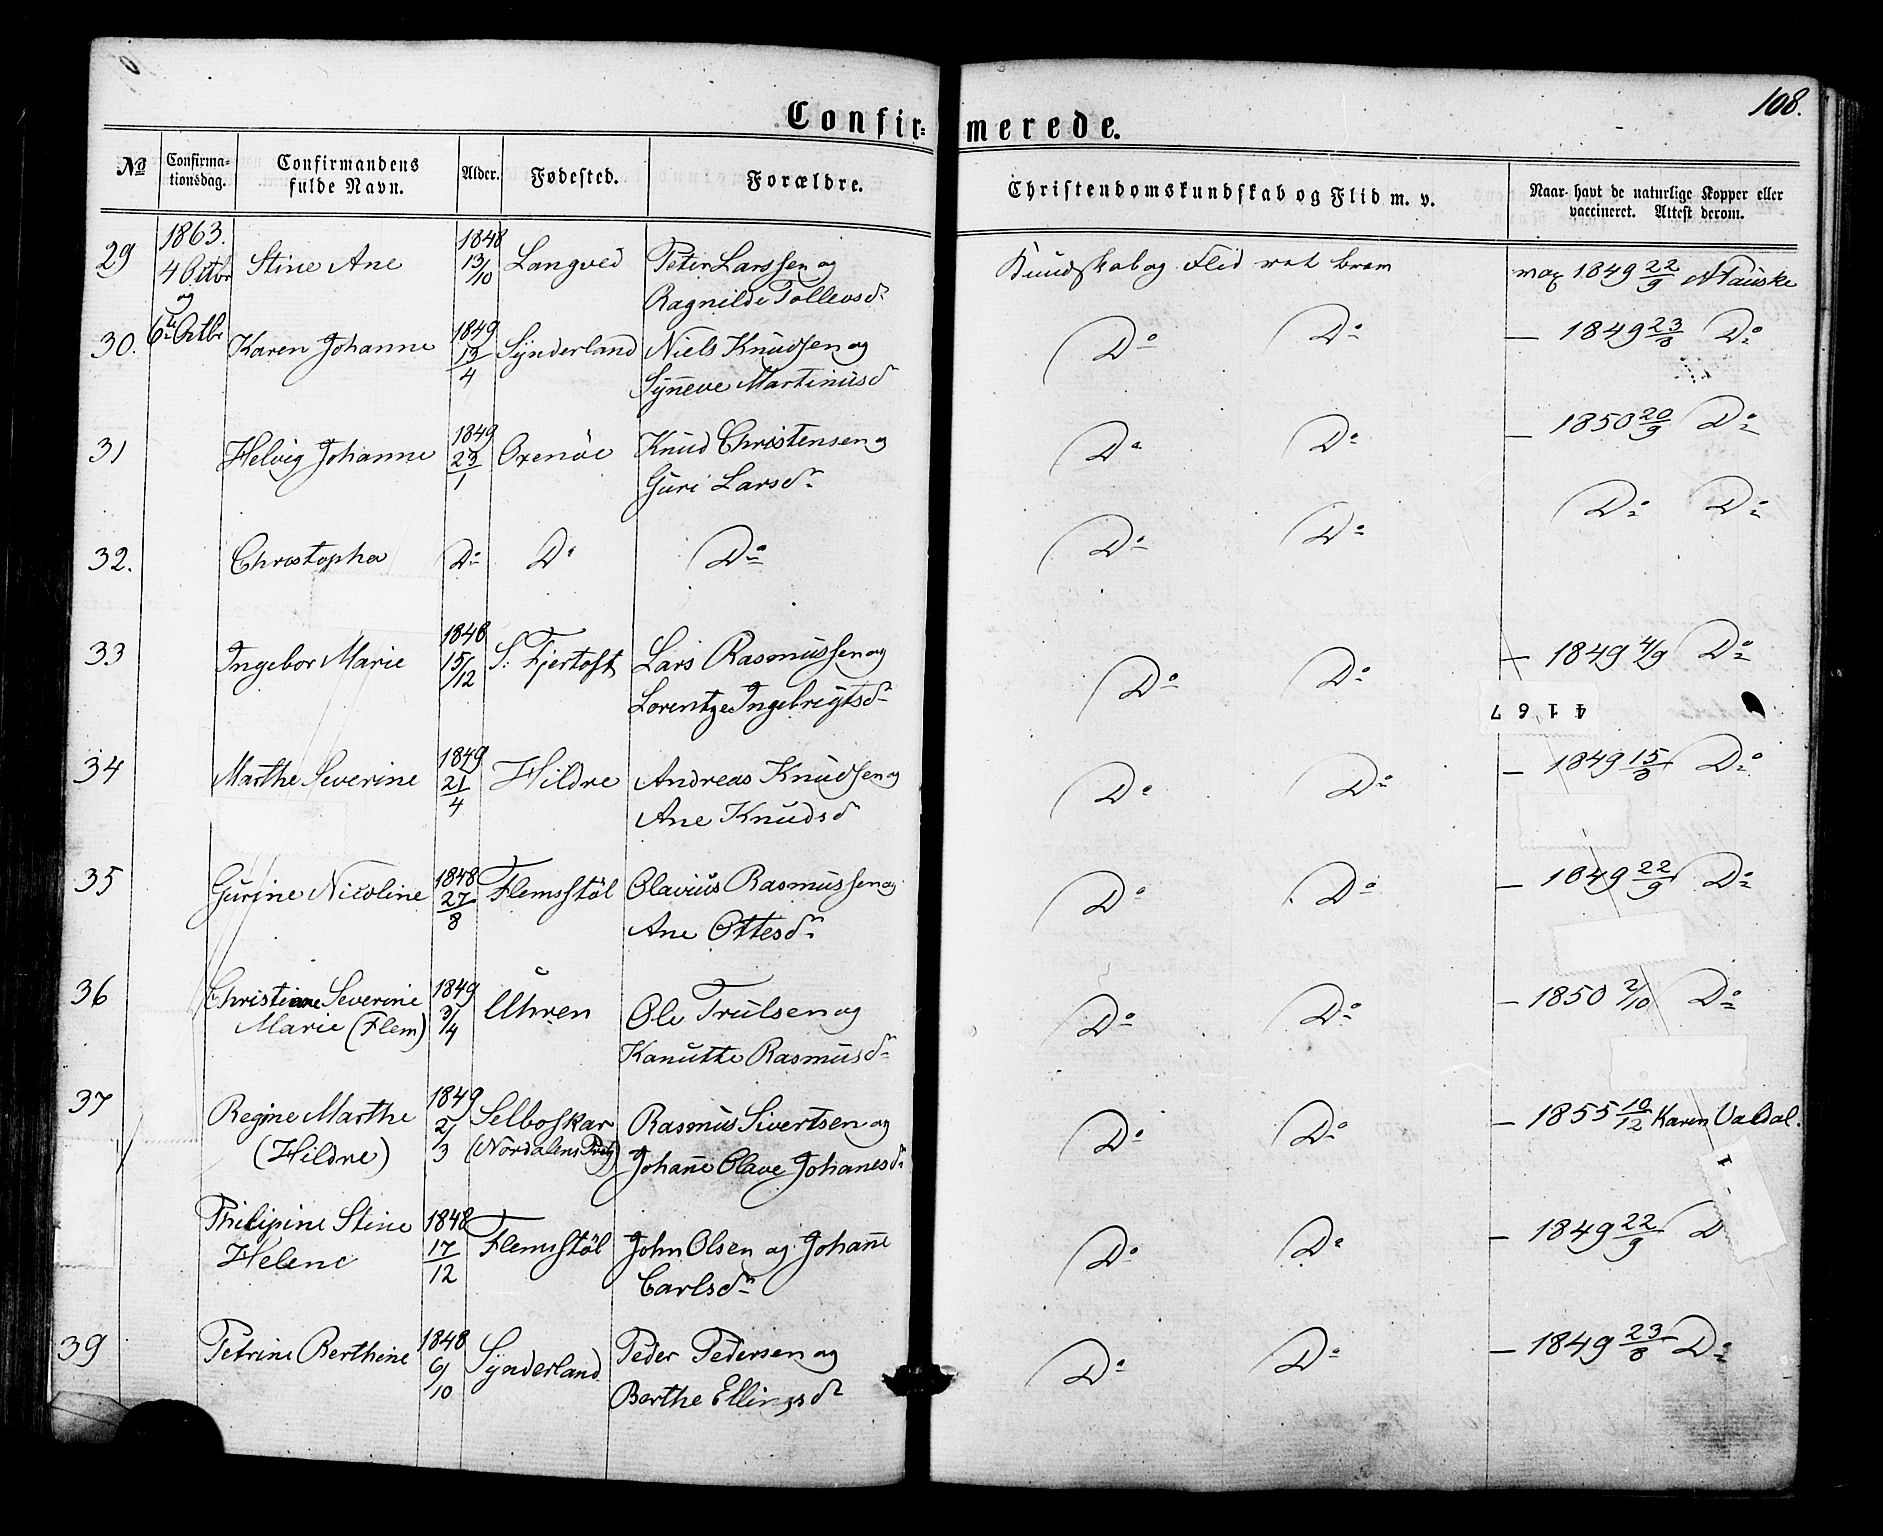 108.
Confir= merede.
No
Confirma-
tionsdag.
Confirmandens
fulde Navn.
Alder.
Fødested.
Forældre.
Christendomskundskab og Flid m. v.
Naar havt de naturlige Kopper eller
vaccineret. Attest derom.
29 1863. 4 Octbr og Stine Ane 1848 13/10 Langved Peter Larssen og
Ragnilde Tollevsdr
Kundskab og Flid 1849 22/9
30. 6te Octbr Karen Johanne 1849 13/4 Synderland Niels Knudsen og
Syneve Martinusd
Do Do — 1849 23/8 Do
31 Helvig Johanne 1849 23/1 Oxenöe Knud Christensen og
Guri Larsdr
Do Do — 1850 20/9 Do
32. Christopha Do Do Do
Do Do Do Do
33 Ingebor Marie 1848 15/12 S. Fjertoft Lars Rasmussen og
Lorentze Ingebrigtsdr
Do Do — 1849 4/9 Do
4167
34 Marthe Severine 1849 21/4 Hildre Andreas Knudsen og
Ane Knudsd
Do Do — 1849 15/8 Do
35 Gurine Nicoline 1848 27/8 Flemsstöl Olavius Rasmussen og
Ane Ottesdr
Do Do — 1849 22/9 Do
36 Christiane Severine 1849 3/4 Uhren Ole Trulsen og
Marie (Flem) Kanutte Rasmusdr
Do Do — 1850 2/10 Do
37 Regine Marthe 1849 2/3 Selboskar Rasmus Sivertsen og
(Hildre) (Nordalens Prg) Johane Olave Johanesdr
Do Do — 1855 10/12 Karen Valdal.
Philipine Stine 1848 17/12 Flemsstöl John Olsen og Johane
Helene Carlsdr
Do Do — 1849 22/9 D
39 Petrine Berthine 1848 6/10 Synderland Peder Pedersen og
Berthe Ellingsdr
Do Do — 1849 23/8 Do